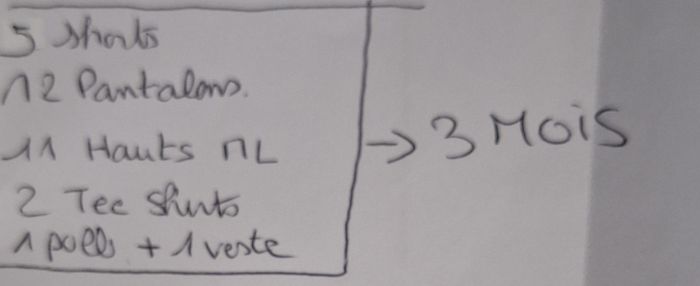 5 shorts
12 Pantalons.
11 Hauts ML
2 Tee shirts
1 pulls + 1 veste
→ 3 MOIS